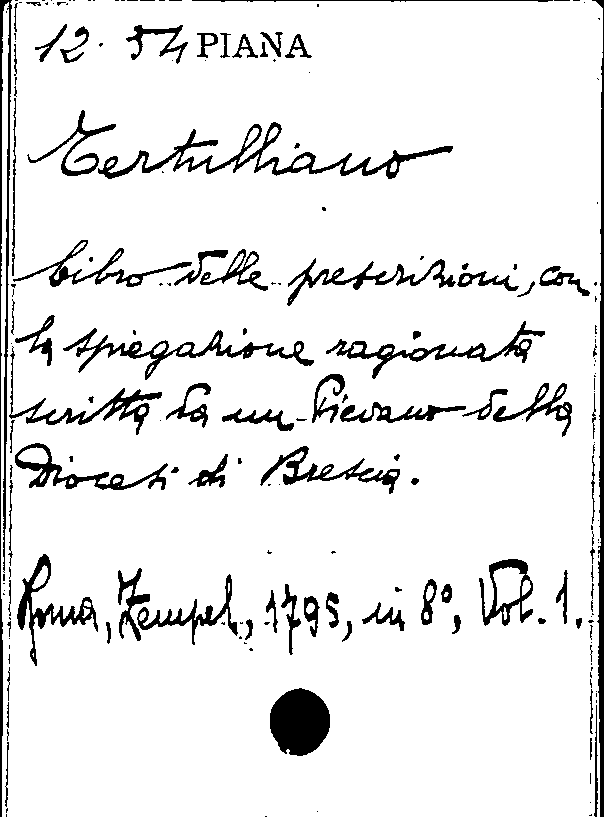 12. 54 PIANA
Tertulliano
Libro delle prescrizioni, con
la spiegazione ragionata
scritta da un Pievano della
Diocesi di Brescia.
Roma, Zempel, 1795, in 8°, Vol. 1.